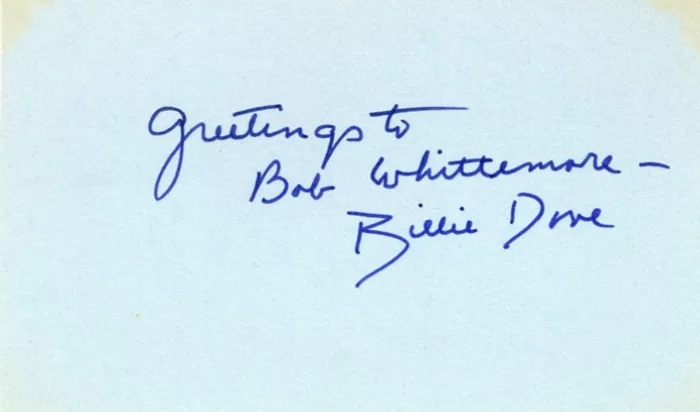 Greetings to
Bob Whittemore –
Billie Dove